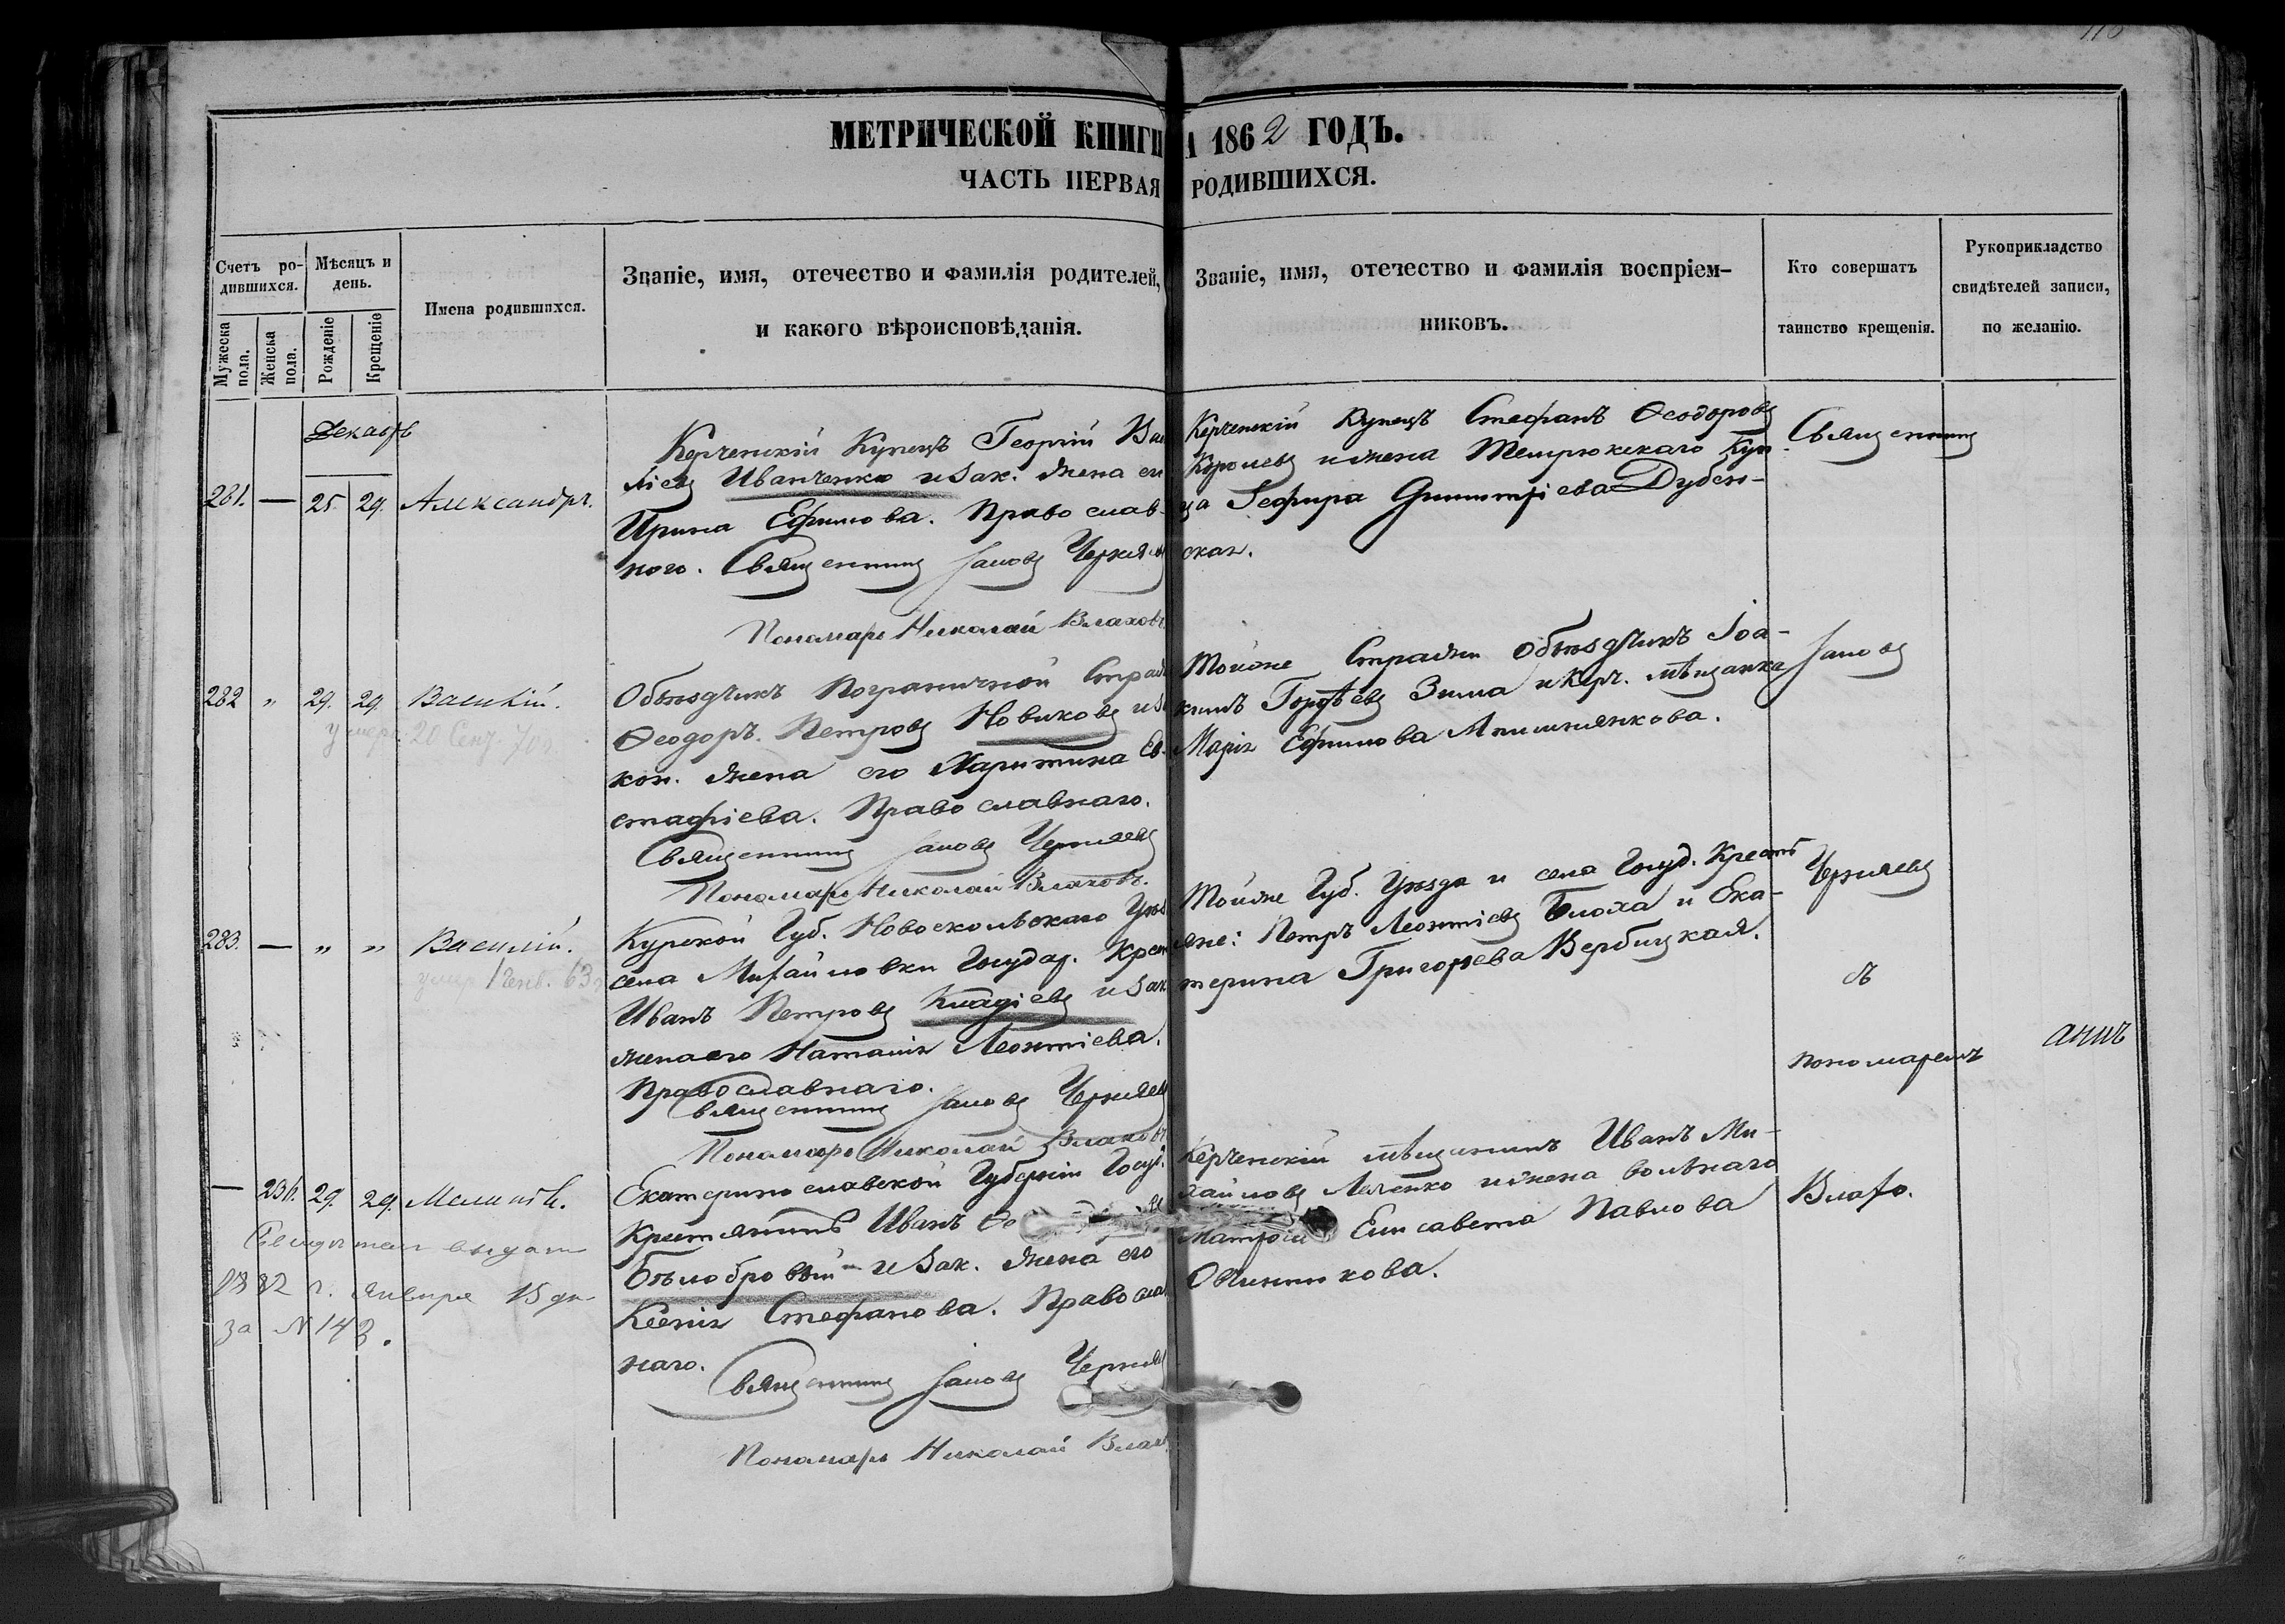 МЕТРИЧЕСКОЙ КНИГИ
А 1862 ГОДЪ.
ЧАСТЬ ПЕРВАЯ
РОДИВШИХСЯ.
Счетъ ро-
дившихся.
Мужеска пола.
Женска пола.
Мѣсяцъ и
день.
Рожденіе
Крещеніе
Имена родившихся.
Званіе, имя, отечество и фамилія родителей,
и какого вѣроисповѣданія.
Званіе, имя, отечество и фамилія воспріем-
никовъ.
Кто совершатъ
таинство крещенія.
Рукоприкладство
свидѣтелей записи,
по желанію.
Декабрь
281. — 25. 29. Александръ.
Керченскій Купецъ Георгій Васи
ліевъ Иванченко и зак. жена ег
Ирина Ефимова. Православ-
ного. Священникъ Іаковъ Черняевъ
Пономарь Николай Влаховъ
Керченскій Купецъ Стефанъ Ѳеодоровъ
Королевъ и жена Темрюкскаго Куп
ца Зефира Димитріева Дубен-
ская.
282 " 29. 29. Василій.
умеръ 20 Сент. 70 г.
Объѣздчикъ Пограничной Страж
Ѳеодоръ Петровъ Новиковъ и за
кон. жена его Харитина Ев-
стафіева. Православнаго.
Священникъ Іаковъ Черняевъ
Пономарь Николай Влаховъ.
Тойже Стражи Объѣздчикъ Іоа-
кимъ Гордѣевъ Зима и Керч. мѣщанка
Марія Ефимова
283. — " " Василій.
умер. 1 Генв. 63
Курской Губ. Новоскольскаго Уѣз
села Михайловки Государ. Крест
Иванъ Петровъ Кладіевъ и зак
жена его Наталія Леонтіева.
Православнаго.
Священникъ Іаковъ Черняевъ
Пономарь Николай Влаховъ
Тойже Губ. Уѣзда и села Госуд. Кресть
яне: Петръ Леонтіевъ Блоха и Ека-
терина Григорьева Вербицкая.
— 236. 29. 29. Меланія.
1882 г. Января 15 дн
за № 143.
Екатеринославской Губерніи Госуд.
Крестьянинъ Иванъ
Бѣлобровый и зак. жена его
Ксенія Стефанова. Православ
наго.
Священникъ Іаковъ Черняев
Пономарь Николай Влах
Керченскій мѣщанинъ Иванъ Ми-
хайловъ Леленко и жена вольнаго
Матроса Елисавета Павлова
Овчинникова.
Священникъ
Іаковъ
Черняевъ
съ
пономаремъ
Влахо.